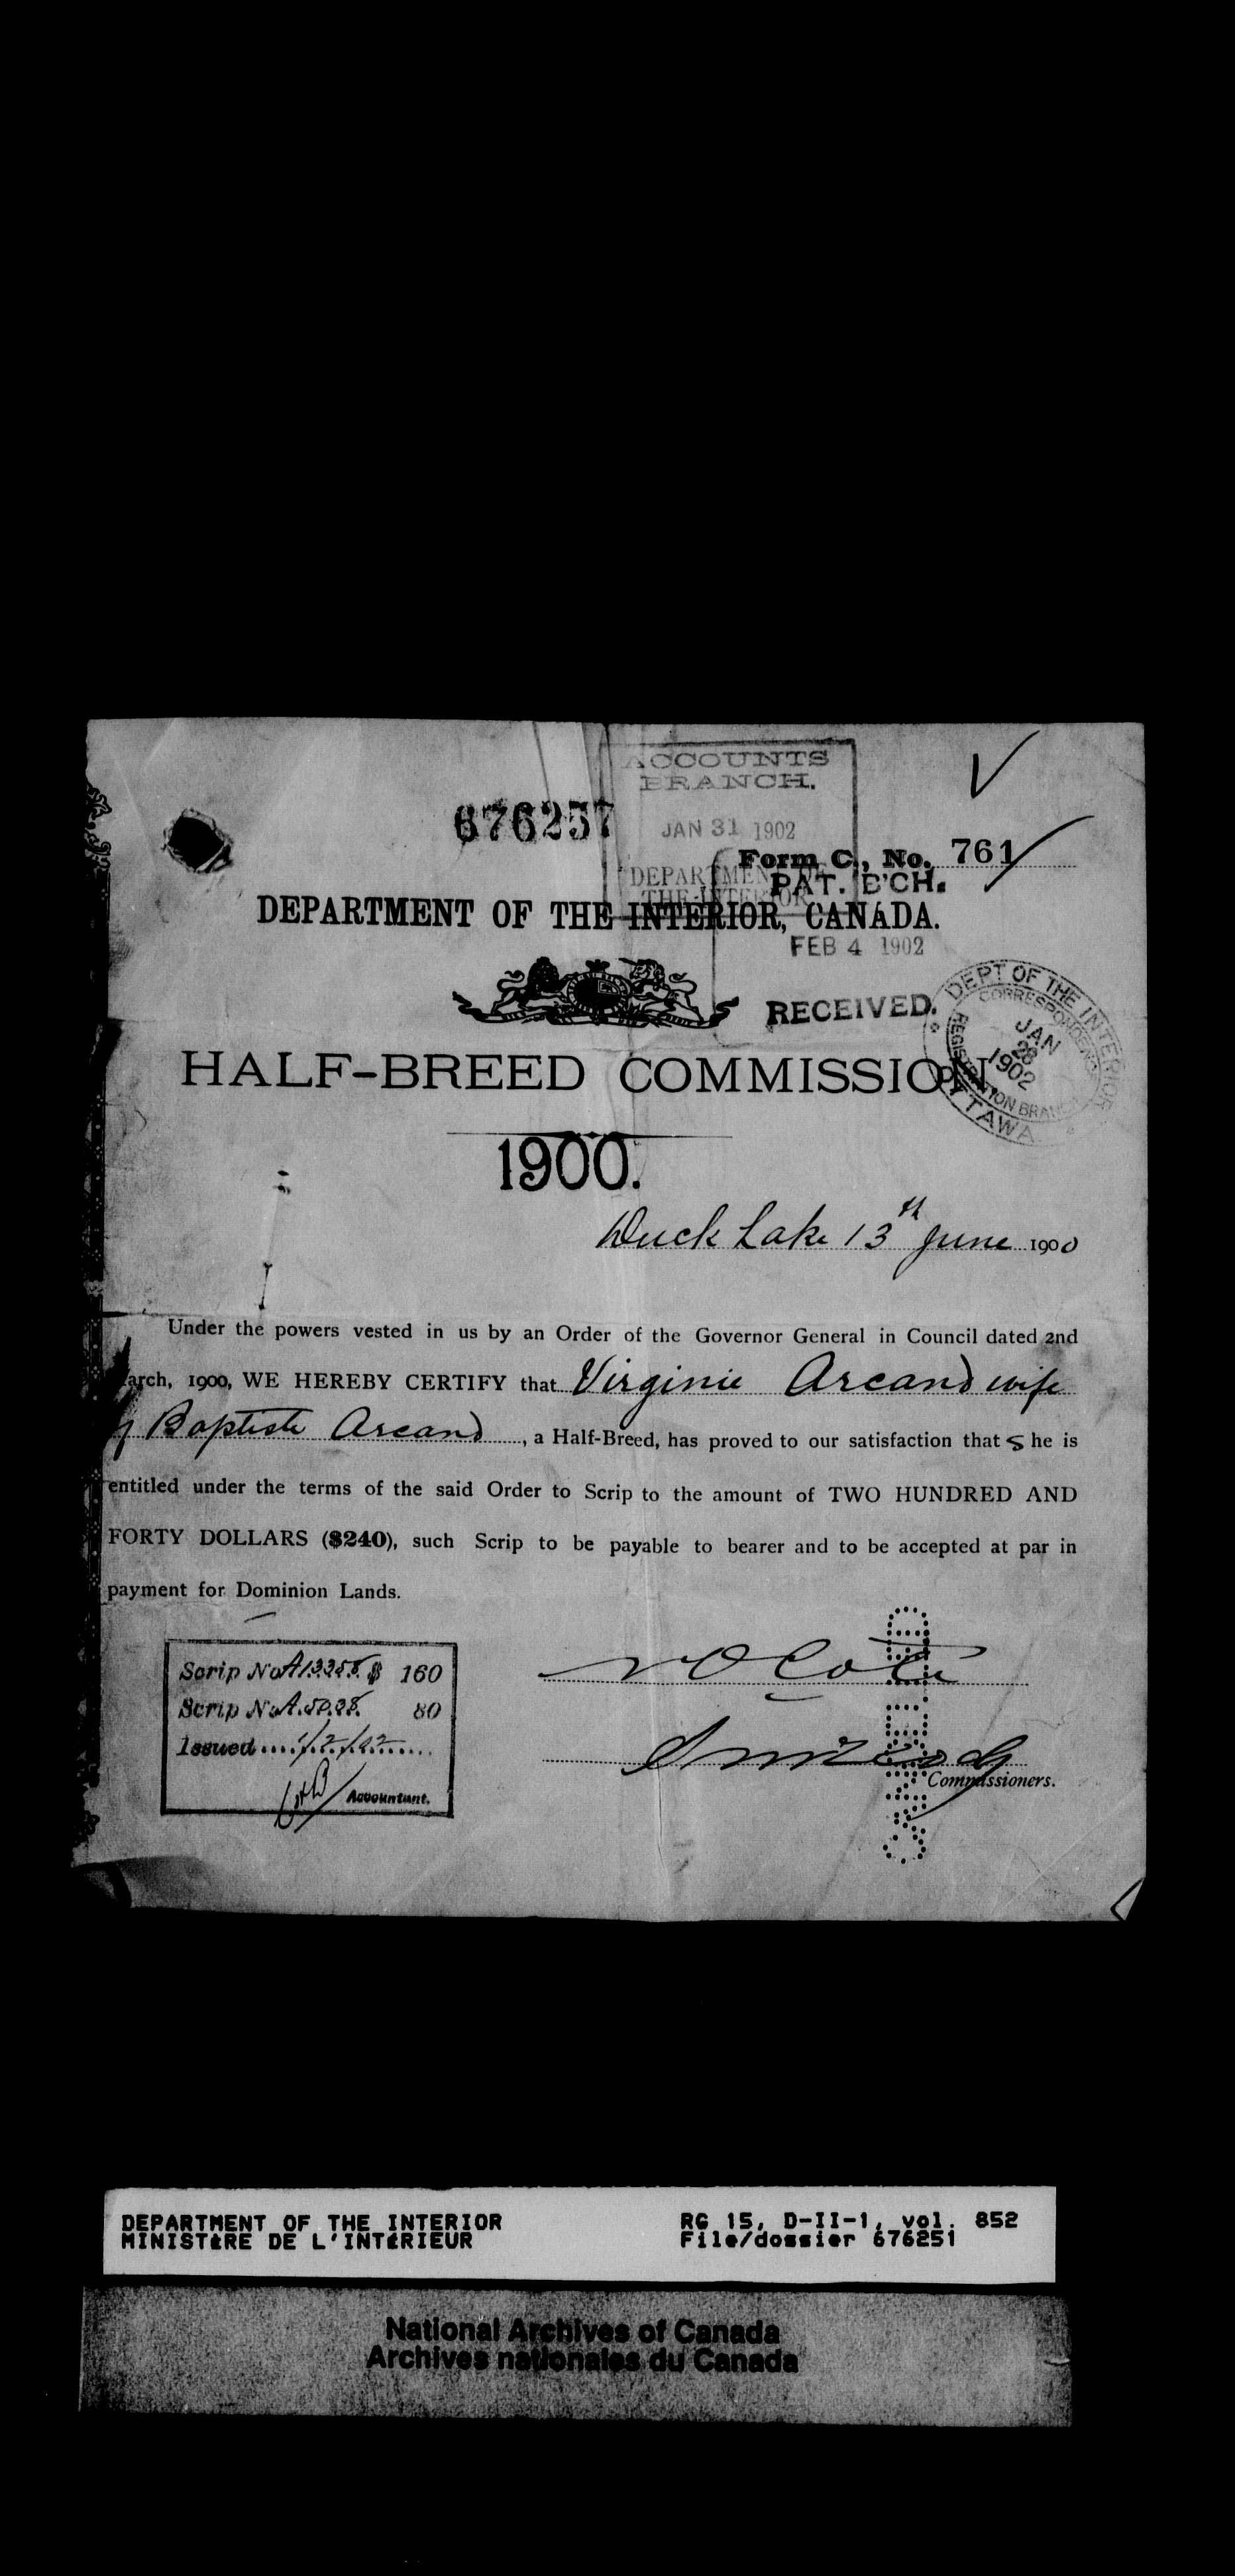 ACCOUNTS
BRANCH.
676257
JAN 31 1902
Form C., No. 761
DEPARTMENT OF
THE INTERIOR
PAT. B'CH.
DEPARTMENT OF THE INTERIOR, CANADA.
FEB 4 1902
RECEIVED.
DEPT OF THE INTERIOR
CORRESPONDENCE
JAN
28
1902
REGISTRATION BRANCH
OTTAWA
HALF-BREED COMMISSION
1900.
Duck Lake 13th June 1900
Under the powers vested in us by an Order of the Governor General in Council dated 2nd
March, 1900, WE HEREBY CERTIFY that Virginie Arcand wife
of Baptiste Arcand, a Half-Breed, has proved to our satisfaction that s he is
entitled under the terms of the said Order to Scrip to the amount of TWO HUNDRED AND
FORTY DOLLARS ($240), such Scrip to be payable to bearer and to be accepted at par in
payment for Dominion Lands.
Scrip No $ 160
Scrip No 80
Issued 1/2/02
Accountant.
Coté
Commissioners.
DEPARTMENT OF THE INTERIOR
MINISTÈRE DE L'INTÉRIEUR
RG 15, D-II-1, vol. 852
File/dossier 676251
National Archives of Canada
Archives nationales du Canada